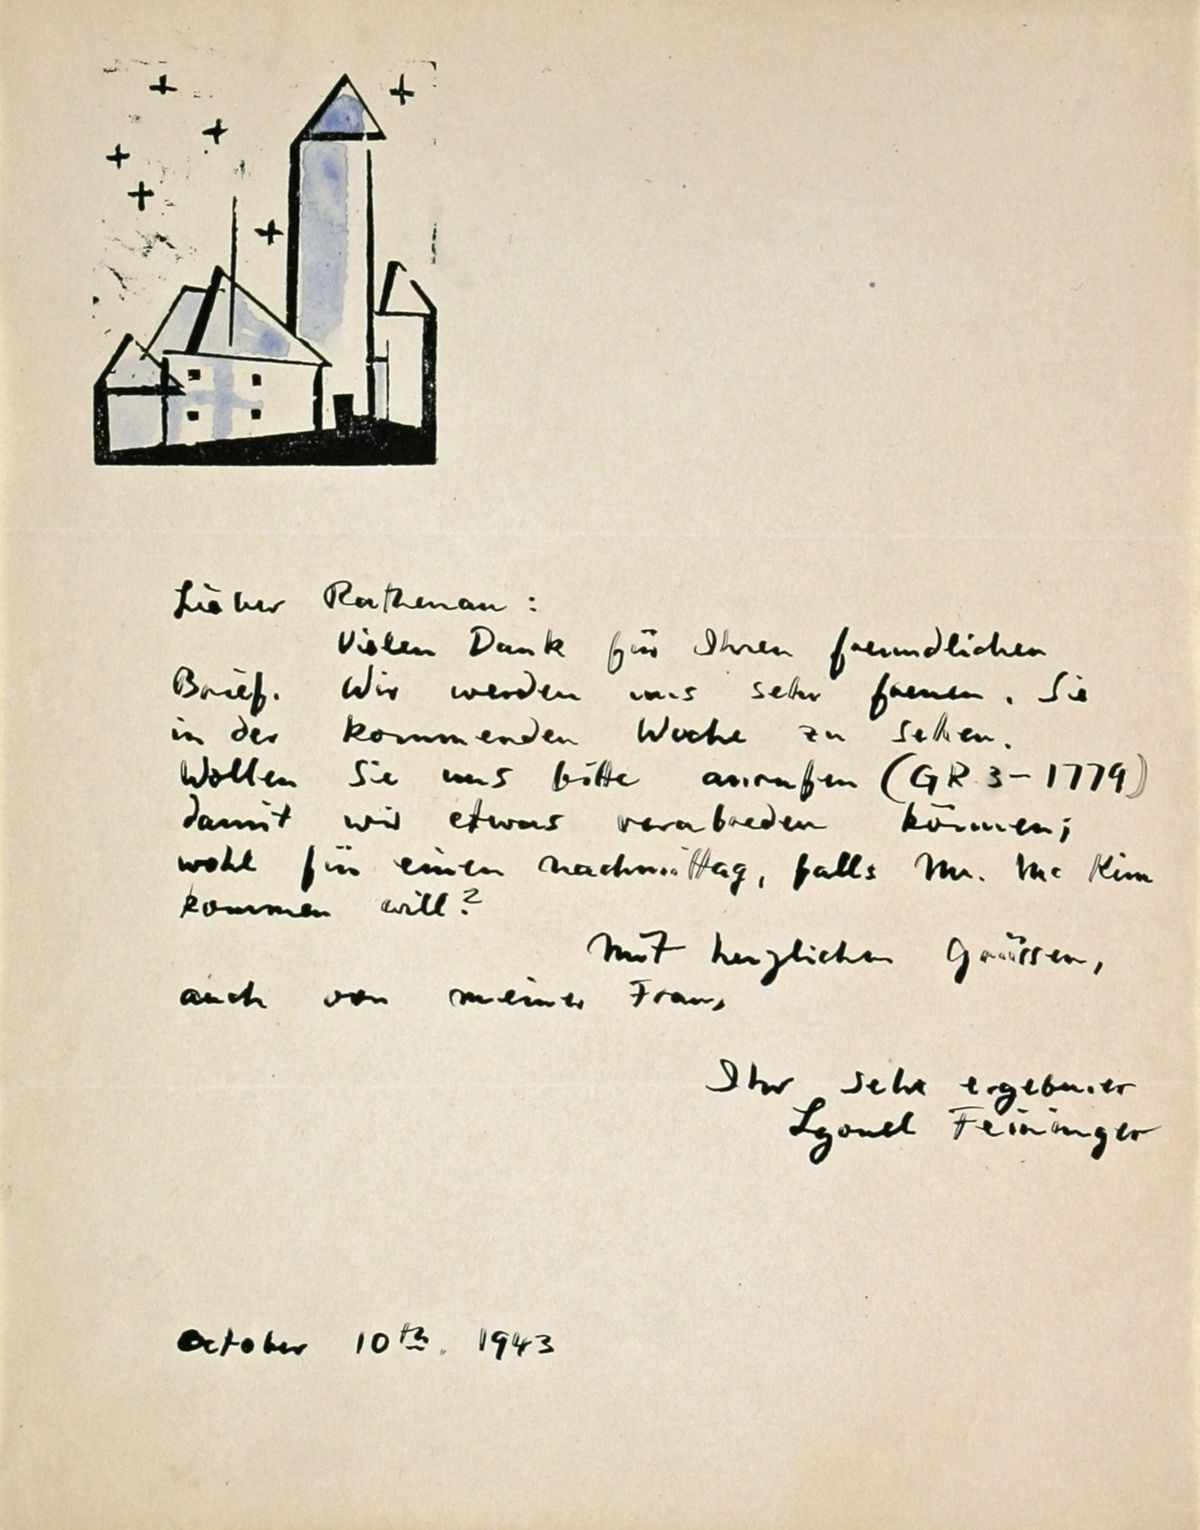 Lieber Rathenau:
Vielen Dank für Ihren freundlichen
Brief. Wir werden uns sehr freuen, Sie
in der kommenden Woche zu sehen.
Wollen Sie uns bitte anrufen (GR 3-1779)
damit wir etwas verabreden können;
wohl für einen nachmittag, falls Mr. Mc Kim
kommen will?
Mit herzlichen Grüssen,
auch von meiner Frau,
Ihr sehr ergebener
Lyonel Feininger
October 10th. 1943